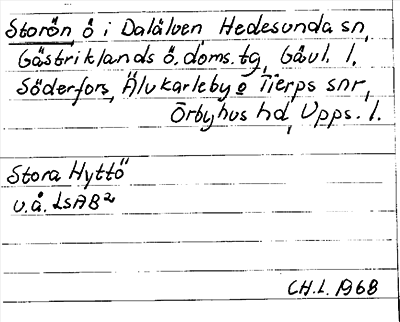 Storön, ö i Dalälven Hedesunda sn,
Gästriklands ö. doms. tg, Gävl. l.
Söderfors, Älvkarleby o Tierps snr,
Örbyhus hd, Upps. l.
Stora Hyttö
u.å. LSAB2
CH.L. 1968